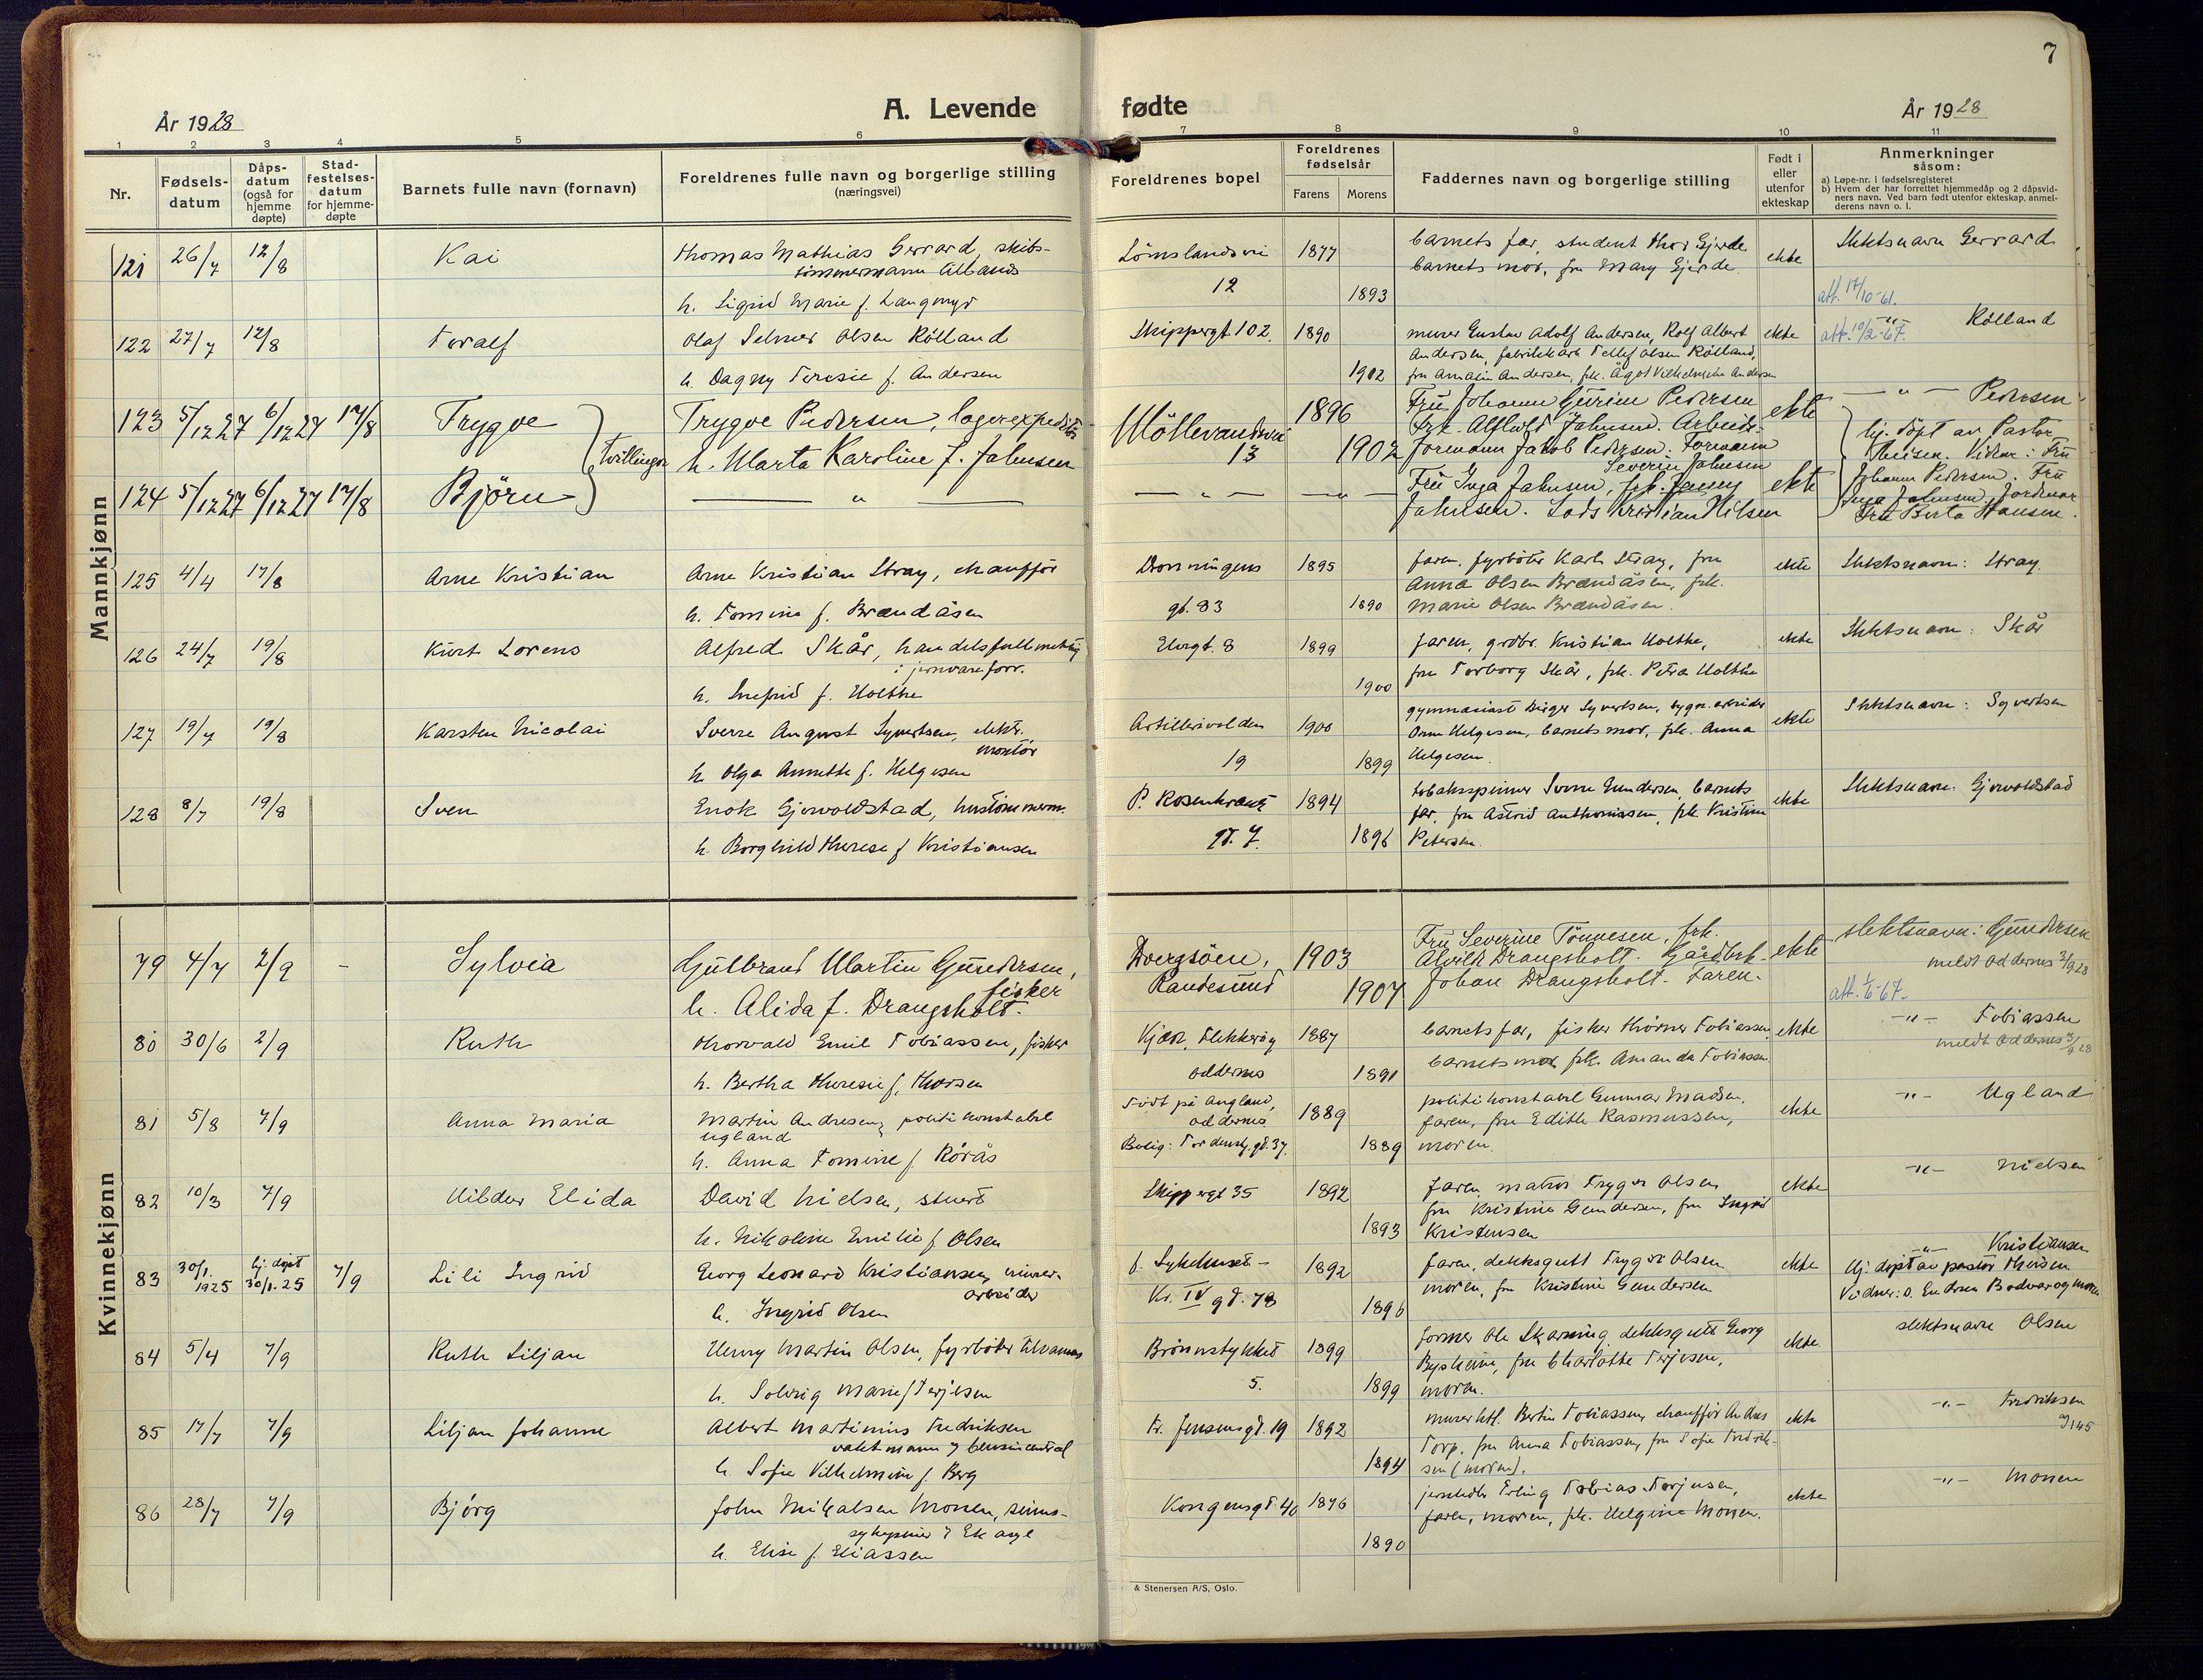 7
År 1928
A. Levende fødte
År 1928
1 2 3 4 5 6 7 8 9 10 11
Nr.
Fødsels-
datum
Dåps-
datum
(også for
hjemme
døpte)
Stad-
festelses-
datum
for hjemme-
døpte
Barnets fulle navn (fornavn)
Foreldrenes fulle navn og borgerlige stilling
(næringsvei)
Foreldrenes bopel
Foreldrenes
fødselsår
Farens Morens
Faddernes navn og borgerlige stilling
Født i
eller
utenfor
ekteskap
Anmerkninger
såsom:
a) Løpe-nr. i fødselsregisteret
b) Hvem der har forrettet hjemmedåp og 2 dåpsvid-
ners navn. Ved barn født utenfor ekteskap, anmel-
derens navn o. l.
Mannkjønn
121 26/7 12/8 Kai
Thomas Mathias Gerrard, skibs-
tømmermann
h. Sigrid Marie f. Langmyr
12
1877
1893
barnets far, student Thor Gjerde
barnets mor, fru Mary Gjerde
ekte
Slektsnavn Gerrard
att. 17/10-61.
122 27/7 12/8 Toralf
Olaf Selmer Olsen Rølland
h. Dagny Teresie f. Andersen
Skippergt 102.
1890
1902
murer Gustav Adolf Andersen, Rolf Albert
Andersen, fabrikkarb Tellef Olsen Rølland,
fru Amalie Andersen, frk. Ågot Vilhelmine Andersen
ekte
-"- Rølland
att. 10/2-67.
123 5/12 27 6/12 27 17/8 Trygve
Tvillinger
Trygve Pedersen, lagerexpeditør
h. Marta Karoline f. Jahnsen
Møllevandsvei
13
1896
1902
Fru Johanne Gurine Pedersen
Frk. Alfhild Jahnsen. Arbeids-
formann Jakob Pedersen. Formann
Severin Jahnsen
ekte
-"- Pedersen
hj. döpt av Pastor
Theisen. Vidner: Fru
124 5/12 27 6/12 27 17/8 Björn
-"-
-"- -"-
Fru Inga Jahnsen, frk. Jenny
Jahnsen. Lods Kristian Nilsen
ekte
Johanne Pedersen. Fru
Inga Jahnsen, Jordmor
Fru Berta Hansen.
125 4/4 17/8 Arne Kristian
Arne Kristian Stray, chauffør
h. Tomine f. Brændåsen
Dronningens
gt. 83
1895
1890
faren, fyrbøter Karl Stray, fru
Anna Olsen Brændåsen, frk.
Marie Olsen Brændåsen.
ekte
Slektsnavn: Stray
126 24/7 19/8 Kurt Lorens
Alfred Skår, handelsfullmektig
i jernvareforr.
h. Snefrid f. Holthe
Elvegt. 8
1899
1900
faren, grdbr. Kristian Holthe,
fru Torborg Skår, frk. Petra Holthe
ekte
Slektsnavn: Skår
127 19/7 19/8 Karsten Nicolai
Sverre August Syvertsen, elektr.
montør
h. Olga Annette f. Helgesen
Artillerivolden
19
1900
1899
gymnasiast Birger Syvertsen, bygn. arbeider
Orm Helgesen, barnets mor, frk. Anna
Helgesen.
ekte
Slektsnavn: Syvertsen
128 8/7 19/8 Sven
Enok Gjervoldstad, hustømmerm.
h. Borghild Therese f Kristiansen
P. Rosenkrantz
gt. 7.
1894
1896
tobakspinner Sverre Gundersen, barnets
far, fru Astrid Anthonissen, frk Kristine
Petersen.
ekte
Slektsnavn: Gjervoldstad
Kvinnekjønn
79 4/7 2/9 - Sylvia
Gulbrand Martin Gundersen,
fisker
h. Alida f. Drangsholt.
Dvergsöen,
Randesund
1903
1907
Fru Severine Tönnesen, frk.
Alvilde Drangsholt. Gårdbrk.
Johan Drangsholt. Faren.
ekte
slektsnavn: Gundersen
meldt Oddernes 3/9.28
att. 1/6-67-
80 30/6 2/9 Ruth
Thorvald Emil Tobiassen, fisker
h. Bertha Theresie f. Thorsen
Kjær, Flekkerøy
Oddernes
1887
1891
barnets far, fisker Thorner Tobiassen,
barnets mor, frk. Amanda Tobiassen
ekte
-"- Tobiassen
meldt Oddernes 3/9.28
81 5/8 7/9 Anna Maria
Martin Andresen, politikonstabel
Ugland
h. Anna Tomine f. Røråsен
Født på Augland,
Oddernes.
Bolig: Tordensk. gt. 37.
1889
1889
politikonstabel Gunnar Madsen,
faren, fru Edith Rasmussen,
moren.
ekte
-"- Ugland
82 10/3 7/9 Hildur Elida
David Nielsen, stuert
h. Nikoline Emilie f. Olsen
Skippergt 35
1892
1893
faren, matros Trygve Olsen
fru Kristine Gundersen, fru Ingrid
Kristensen
ekte
-"- Nielsen
83 30/1. 1925 hj. døpt 30/1.25 7/9 Lili Ingrid
Georg Leonard Kristiansen, minerarbeider
h. Ingrid Olsen
f. Sykehuset -
Kr. IV gt. 78
1892
1896
faren, dekksgutt Trygve Olsen
moren, fru Kristine Gundersen
ekte
-"- Kristiansen
Hj. døpt av pastor Theisen
84 5/4 7/9 Ruth Liljan
Henry Martin Olsen, fyrbøter
h. Solveig Marie f Terjesen
Brønnstykket
5.
1899
1899
former Ole Skarning, dekksgutt Georg
fru Charlotte Terjesen,
moren.
ekte.
slektsnavn Olsen
85 17/7 7/9 Liljan Johanne
Albert Martinius Fredriksen
vaktmann
h. Sofie Vilhelmine f. Berg
Fr. Jensensgt. 19
1892
1894
murerhtl. Bertin Tobiassen, chauffør Anders
Torp, fru Anna Tobiassen, fru Sofie Fredrik-
sen (moren).
ekte
-"- Fredriksen
86 28/7 7/9 Bjørg
John Mikalsen Monen,
h. Elise f. Eliassen
Kongensgt. 40
1896
1890
Erling Tobias Torjusen,
faren, moren, frk. Helgine Monen.
ekte
-"- Monen
& Stenersen A/S, Oslo.